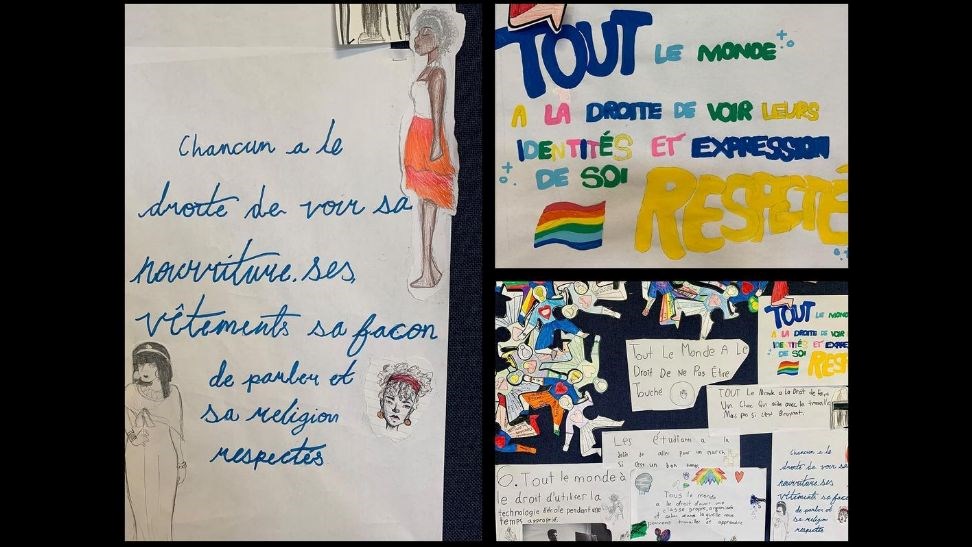 Chancun a le
droite de voir sa
nourriture. ses
vêtements sa façon
de parler et
sa religion
respectés
TOUT LE MONDE
A LA DROITE DE VOIR LEURS
IDENTITÉS ET EXPRESSION
DE SOI RESPECTÉ
TOUT LE MOND
A LA DROITE DE VOIR
IDENTITÉS ET EXPRE
DE SOI RES
Tout Le Monde A Le
Droit De Ne Pas Être
Touche
TOUT Le Monde a Le Droit de
Un Choc Qui aide avec la travaille
Mais pas si c'est
Les étudiant a la
de aller pour
Si c'est un bon
6. Tout le monde à
le droit d'utiliser la
technologie d'école pendant
temps approprié.
Tous le monde
a le droit d'avoir une
classe propre, organisée
et
peuvent travailler et apprendre
Chancun a le
droite de voir sa
nourriture. ses
vêtements sa faço
de parler et
sa religion
respectés